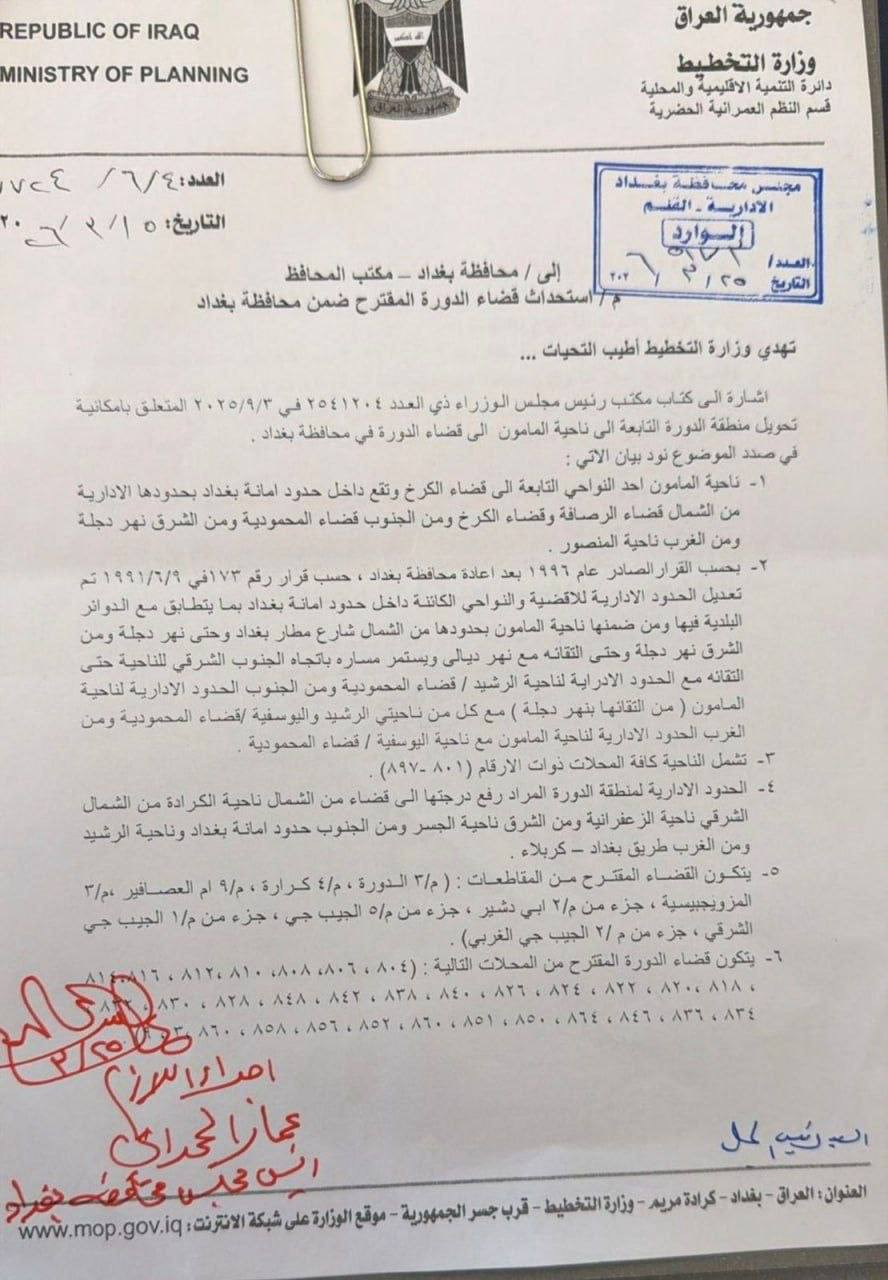 REPUBLIC OF IRAQ
MINISTRY OF PLANNING
جمهورية العراق
جمهورية العراق
وزارة التخطيط
دائرة التنمية الاقليمية والمحلية
قسم النظم العمرانية الحضرية
العدد: ٦/٤/
التاريخ: ٢٠ ٦/٣/١٥
مجلس محافظة بغداد
الادارية - القلم
الوارد
العدد/
التاريخ ٢٥/٣/٢٠٢٦
إلى / محافظة بغداد – مكتب المحافظ
م/ استحداث قضاء الدورة المقترح ضمن محافظة بغداد
تهدي وزارة التخطيط أطيب التحيات ...
اشارة الى كتاب مكتب رئيس مجلس الوزراء ذي العدد ٢٥٤١٢٠٤ في ٢٠٢٥/٩/٣ المتعلق بامكانية
تحويل منطقة الدورة التابعة الى ناحية المامون الى قضاء الدورة في محافظة بغداد .
في صدد الموضوع نود بيان الاتي :
١- ناحية المامون احد النواحي التابعة الى قضاء الكرخ وتقع داخل حدود امانة بغداد بحدودها الادارية
من الشمال قضاء الرصافة وقضاء الكرخ ومن الجنوب قضاء المحمودية ومن الشرق نهر دجلة
ومن الغرب ناحية المنصور .
٢- بحسب القرار الصادر عام ١٩٩٦ بعد اعادة محافظة بغداد ، حسب قرار رقم ١٧٣ في ١٩٩١/٦/٩ تم
تعديل الحدود الادارية للاقضية والنواحي الكائنة داخل حدود امانة بغداد بما يتطابق مع الدوائر
البلدية فيها ومن ضمنها ناحية المامون بحدودها من الشمال شارع مطار بغداد وحتى نهر دجلة ومن
الشرق نهر دجلة وحتى التقائه مع نهر ديالى ويستمر مساره باتجاه الجنوب الشرقي للناحية حتى
التقائه مع الحدود الادراية لناحية الرشيد / قضاء المحمودية ومن الجنوب الحدود الادارية لناحية
المامون ( من التقائها بنهر دجلة ) مع كل من ناحيتي الرشيد واليوسفية /قضاء المحمودية ومن
الغرب الحدود الادارية لناحية المامون مع ناحية اليوسفية / قضاء المحمودية .
٣- تشمل الناحية كافة المحلات ذوات الارقام (٨٠١ -٨٩٧) .
٤- الحدود الادارية لمنطقة الدورة المراد رفع درجتها الى قضاء من الشمال ناحية الكرادة من الشمال
الشرقي ناحية الزعفرانية ومن الشرق ناحية الجسر ومن الجنوب حدود امانة بغداد وناحية الرشيد
ومن الغرب طريق بغداد – كربلاء .
٥- يتكون القضاء المقترح من المقاطعات : ( م/٣ الدورة ، م/٤ كرارة ، م/٩ ام العصافير ،م/٣
المزويجبيسية ، جزء من م/٢ ابي دشير ، جزء من م/٥ الجيب جي ، جزء من م/١ الجيب جي
الشرقي ، جزء من م /٢ الجيب جي الغربي) .
٦- يتكون قضاء الدورة المقترح من المحلات التالية : (٨٠٤ ، ٨٠٦ ،٨٠٨ ، ٨١٠ ،٨١٢ ،٨١٤،٨١٦
، ٨١٨ ،٨٢٠ ، ٨٢٢ ، ٨٢٤ ، ٨٢٦ ، ٨٤٠ ، ٨٣٨ ، ٨٤٢ ، ٨٤٨ ، ٨٢٨ ، ٨٣٠ ، ٨٣٢
٨٣٤ ، ٨٣٦ ، ٨٤٦ ، ٨٦٤ ، ٨٥٠ ، ٨٥١ ، ٨٦٠ ، ٨٥٢ ، ٨٥٦ ، ٨٥٨ ، ٨٦٠
٣/٢٥
اجراء اللازم
عمار الحمداني
رئيس مجلس محافظة بغداد
العنوان: العراق - بغداد - كرادة مريم - وزارة التخطيط - قرب جسر الجمهورية - موقع الوزارة على شبكة الانترنت: www.mop.gov.iq